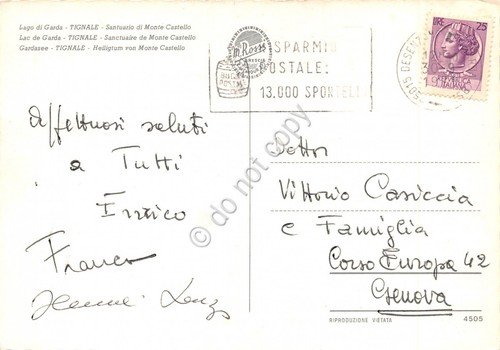 Lago di Garda - TIGNALE - Santuario di Monte Castello
Lac de Garda - TIGNALE - Sanctuaire de Monte Castello
Gardasee - TIGNALE - Heiligtum von Monte Castello
RISPARMIO
POSTALE:
13.000 SPORTELLI
LIRE 25
Affettuosi saluti
a Tutti
Enrico
Franco
Dottor
Vittorio Casiccia
e Famiglia
Corso Europa 42
Genova
RIPRODUZIONE VIETATA
4505
do not copy